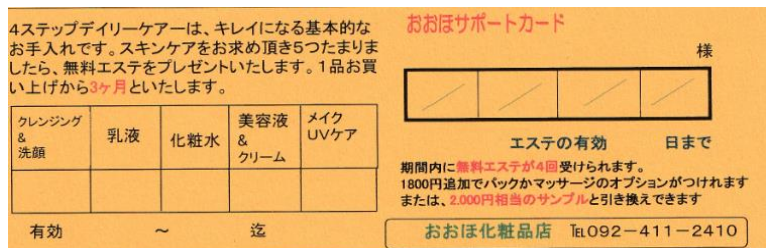 4ステップデイリーケアーは、キレイになる基本的な
お手入れです。スキンケアをお求め頂き5つたまりま
したら、無料エステをプレゼントいたします。1品お買
い上げから3ヶ月といたします。
クレンジング
&
洗顔
乳液
化粧水
美容液
&
クリーム
メイク
UVケア
有効 ～ 迄
おおほサポートカード
様
エステの有効 日まで
期間内に無料エステが4回受けられます。
1800円追加でパックかマッサージのオプションがつけれます
または、2.000円相当のサンプルと引き換えできます
おおほ化粧品店 ℡092－411－2410